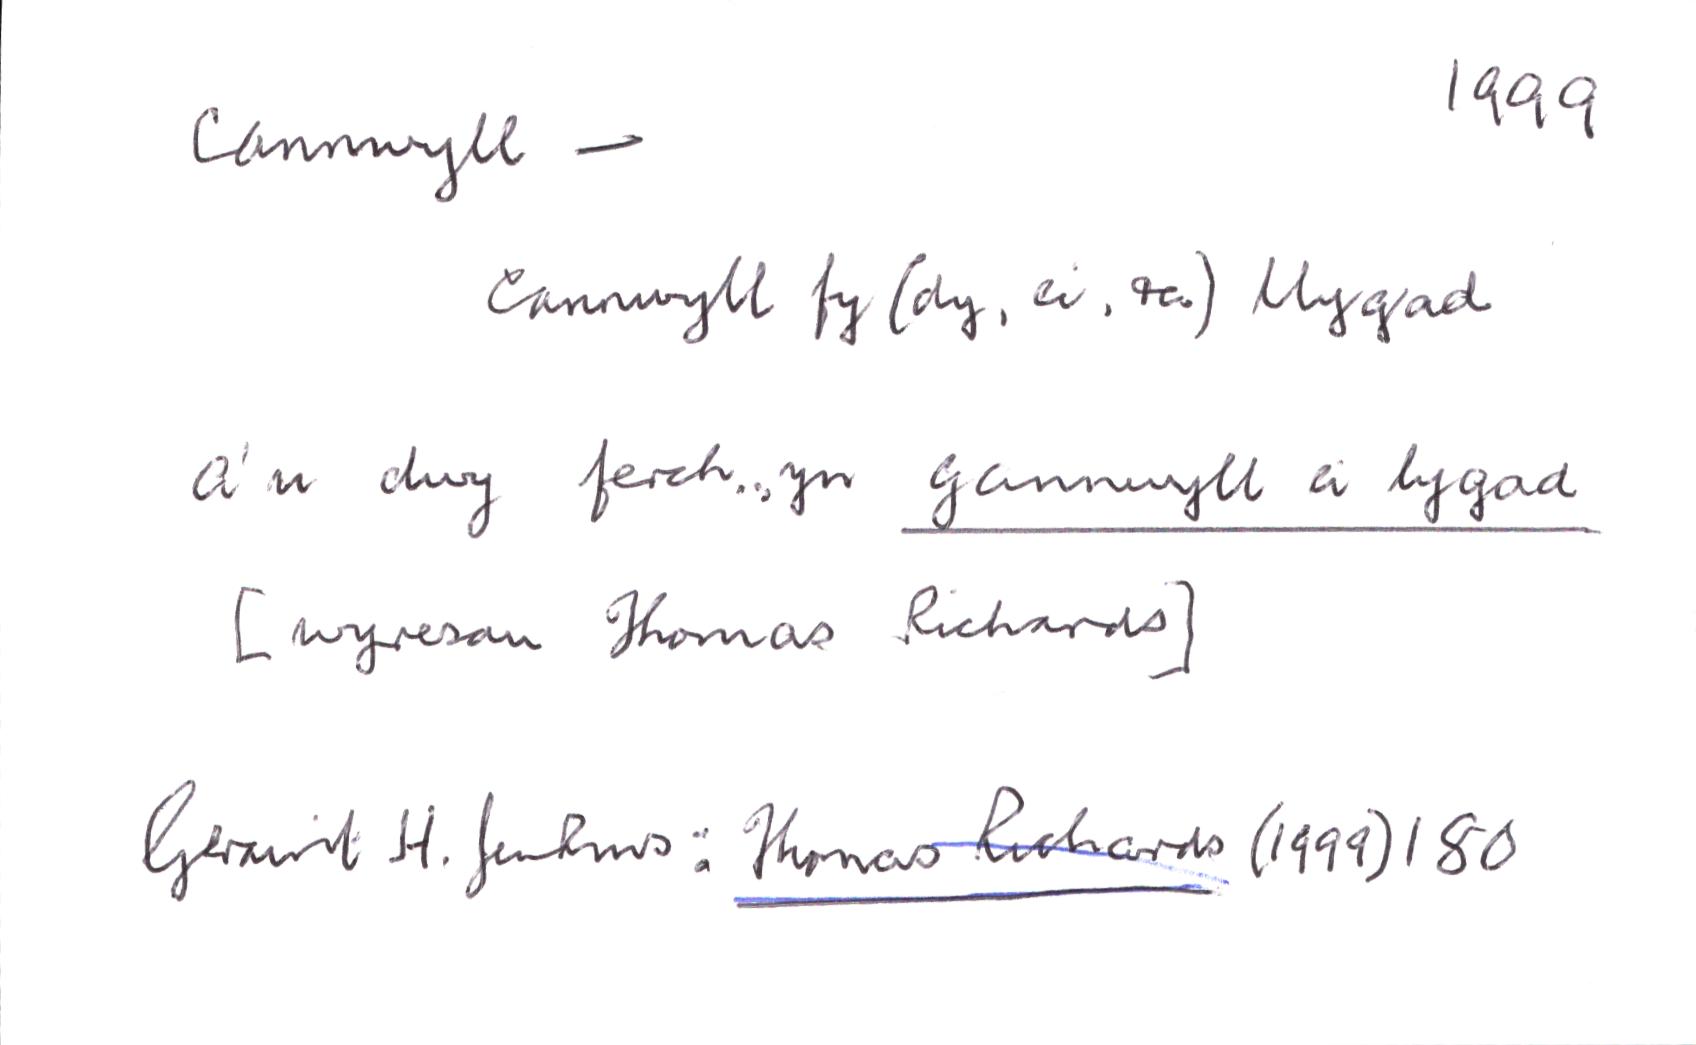 1999
Cannwyll –
cannwyll fy (dy, ei, &c.) llygad
a'u dwy ferch..., yn gannwyll ei lygad
[wyresau Thomas Richards]
Geraint H. Jenkins: Thomas Richards (1999) 180